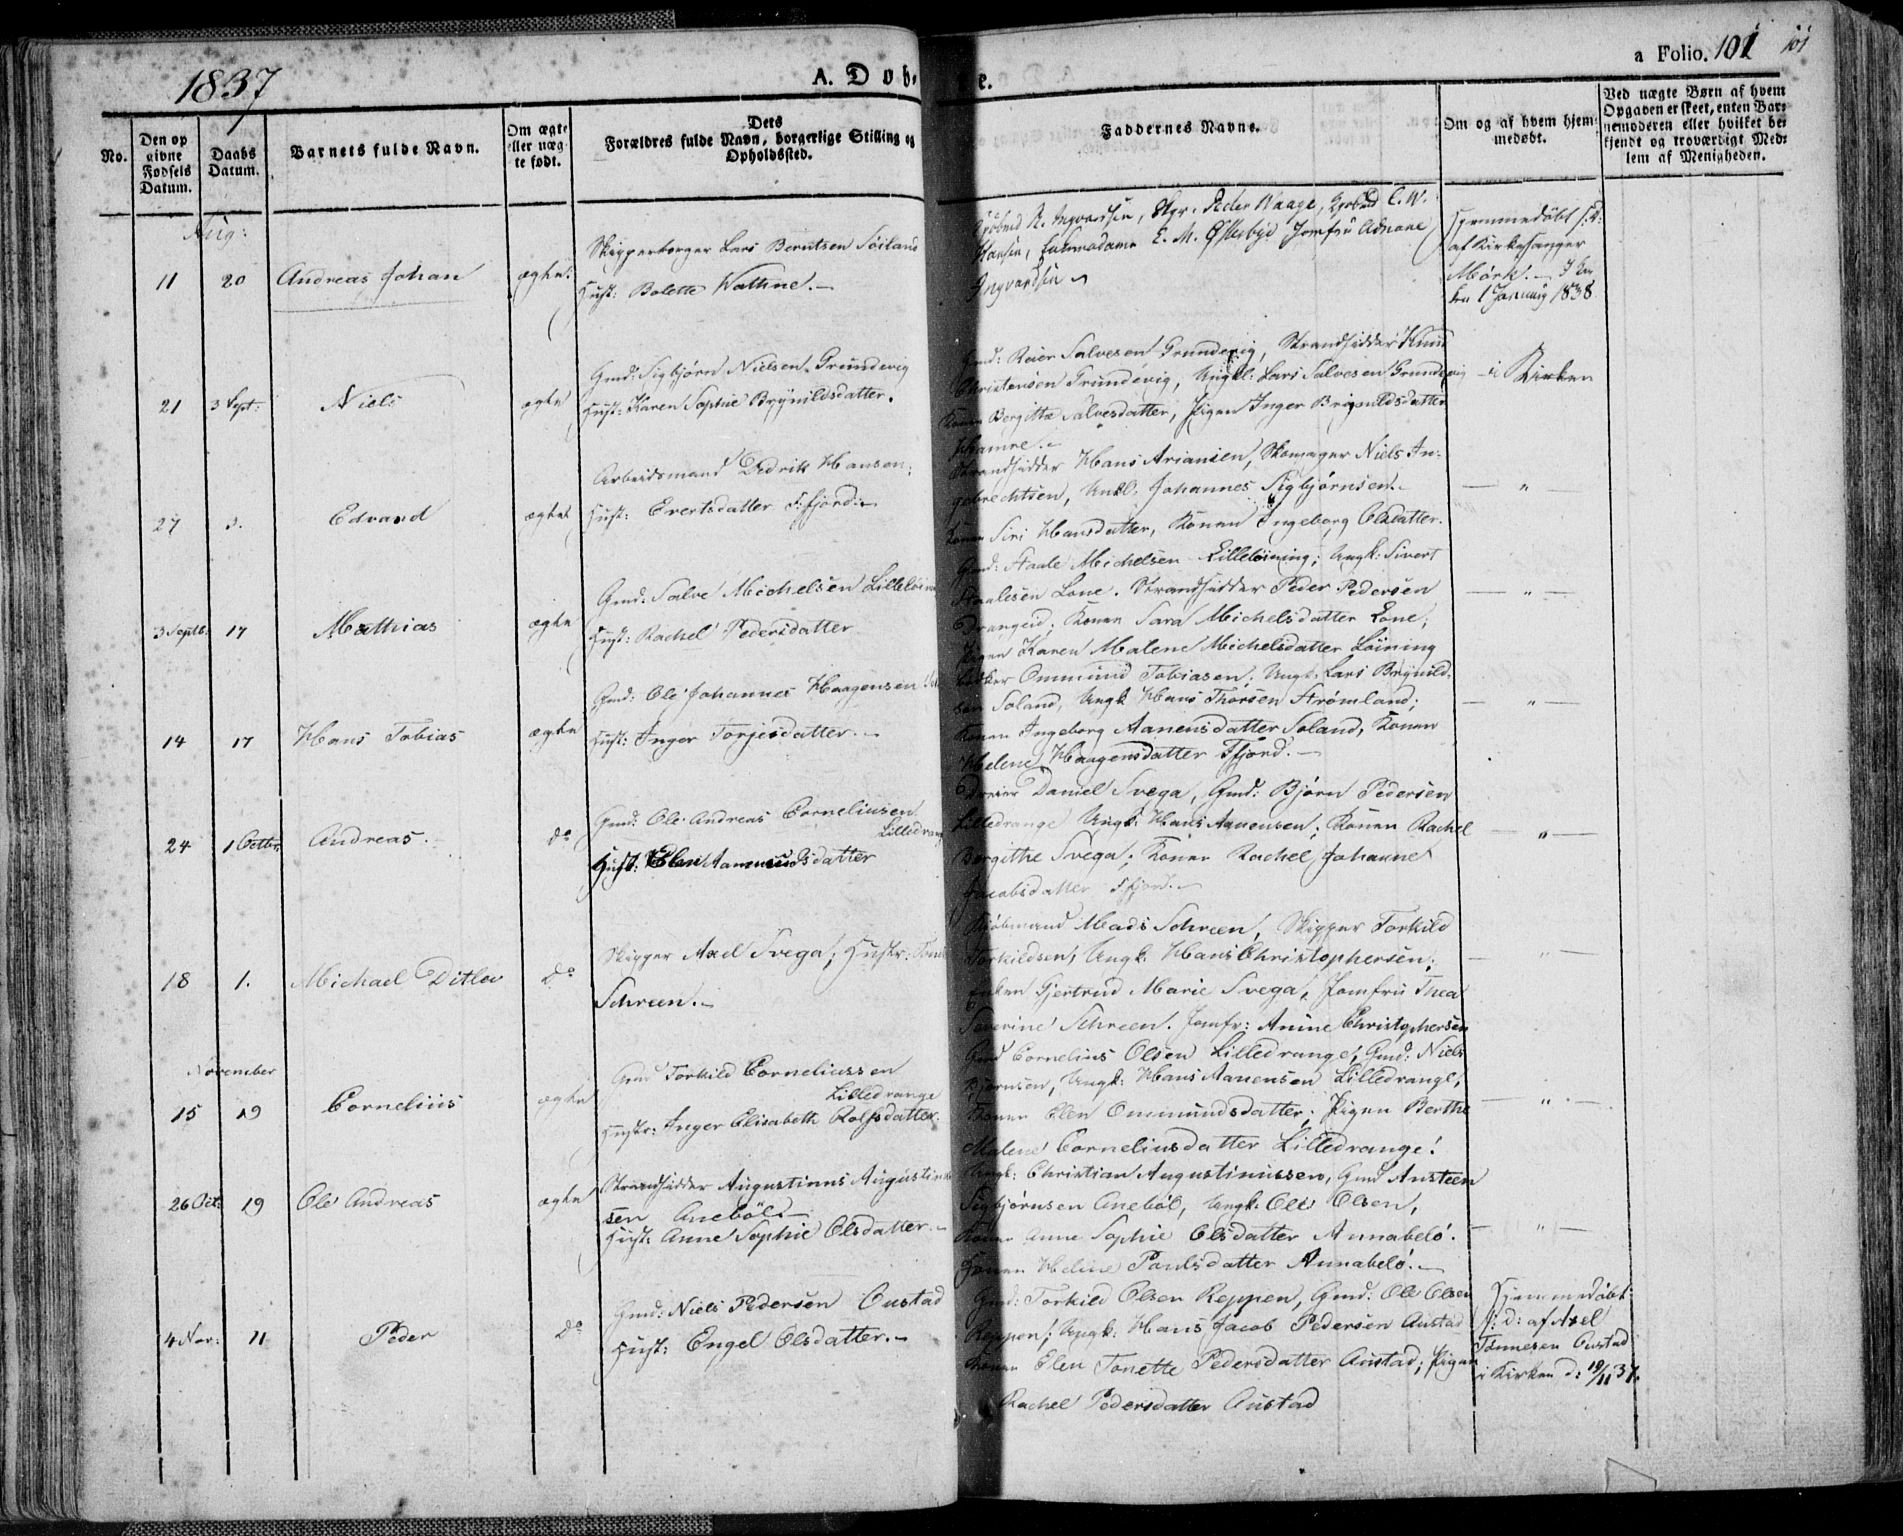 1837
A. Døbte.
a Folio. 101
101
No.
Den opgivne Fødsels Datum.
Daabs Datum.
Barnets fulde Navn.
Om ægte eller uægte født.
Dets Forældres fulde Navn, borgerlige Stilling og Opholdssted.
Faddernes Navne.
Om og af hvem hjemmedøbt.
Ved uægte Børn af hvem Opgaven er skeet, enten Barnemoderen eller hvilket bekjendt og troværdigt Medlem af Menigheden.
Aug:
11 20 Andreas Johan ægte.
Skipperborger Lars Berntsen Söiland
Hust: Bolette Wathne.
Kjöbmd R. Ingvardsen, Peder Waage, Kjöbmd C. W.
Hansen, E. M. Österbye Jomfru Adriane
Ingvardsen
Hjemmedöbt f: D:
af Kirkesanger
Mörk.
den 1 Januarij 1838
21 3 Sept: Niels ægte
Gmd: Sigbjörn Nielsen Grundevig
Hust: Karen Sophie Brynildsdatter.
Gmd: Reier Salvesen Grundevig, Strandsidder Knud
Christensen Grundevig, Ungkl: Lars Salvesen Grundevig
Konen Bergitte Salvesdatter, Pigen Inger Brynildsdatter
i Kirken
27 3. Edvard ægte
Arbeidsmand Didrik Hansen;
Hust: Evertsdatter F:fjord.
Strandsidder Hans Ariansen, Skomager Niels In-
gebrechtsen, Unkl: Johannes Sigbjörnsen.
Konen Siri Hansdatter, Konen Ingeborg Olsdatter.
— " —
3 Septb: 17 Mathias ægte
Gmd: Salve Michelsen Lillelöining
Hust: Rachel Pedersdatter
Gmd: Staale Michelsen Lillelöining; Ungk: Sivert
Staalesen Lone. Strandsidder Peder Pedersen
Drangeid; Konen Sara Michelsdatter Lone;
Pigen Karen Malene Michelsdatter Löining
— " —
14 17 Hans Tobias ægte
Gmd: Ole Johannes Haagensen
Hust: Inger Torjesdatter.
Ommund Tobiasen; Ungk: Lars Brynild-
sen Soland, Ungk Hans Thorsen Strömland;
Konen Ingeborg Aanensdatter Soland, Konen
Helene Haagensdatter Ffjord.
— " —
24 1 Octbr: Andreas. do
Gmd: Ole Andreas Corneliusen
Lilledrange
Hust: Elen Aanensdatter
Daniel Svega, Gmd: Björn Pedersen
Lilledrange Ungk: Hans Aanensen; Konen Rachel
Bergithe Svega; Konen Rachel Johanne
Jacobsdatter Ffjord.
— " —
18 1. Michael Ditlev do
Skipper Axel Svega; Hustr:
Schreen.
Kjöbmand Mads Schreen, Skipper Torkild
Torkildsen, Ungk: Hans Christophersen;
Enken Gjertrud Marie Svega, Jomfru Thea
Severine Schreen. Jomfr: Anine Christophersen
— " —
November
15 19 Cornelius ægte
Gmd Torkild Corneliussen
Lilledrange
Hustr: Inger Elisabeth Rolfsdatter
Gmd Cornelius Olsen Lilledrange, Gmd: Niels
Björnsen, Ungk: Hans Aanensen Lilledrange,
Konen Elen Ommundsdatter; Pigen Berthe
Malene Corneliusdatter Lilledrange!
— " —
26 Oct: 19 Ole Andreas ægte
Strandsidder Augustinus Augustinus-
sen Aneböl
Hust: Anne Sophie Olsdatter.
Ungk: Christian Augustinussen, Gmd Austeen
Sigbjörnsen Aneböl, Ungk: Ole Olsen,
Konen Anne Sophie Olsdatter Annabelö.
Konen Helene Poulsdatter Annabelö.
— " —
4 Nov: 11 Peder do
Gmd: Niels Pedersen Oustad
Hust: Engel Olsdatter.
Gmd: Torkild Olsen Reppen, Gmd: Ole Olsen
Reppen; Ungk: Hans Jacob Pedersen Austad
Konen Elen Tonette Pedersdatter Austad; Pigen
Rachel Pedersdatter Oustad
Hjemmedöbt:
f: D: af Axel
Tönnesen Oustad
i Kirken d: 19/11 37.